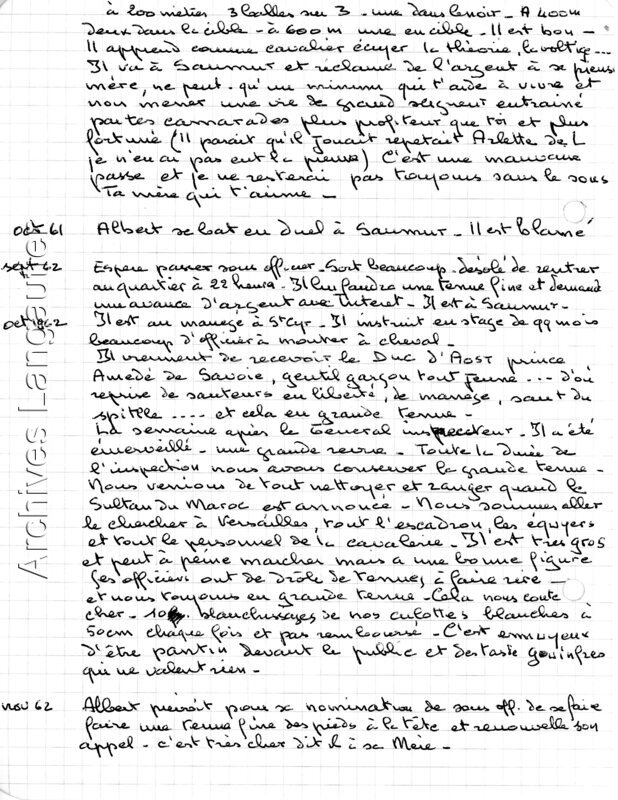 à 200 metres 3 balles sur 3 - une dans le noir - A 400m
deux dans la cible - à 600m une en cible - Il est bon -
Il apprend comme cavalier écuyer la théorie, la voltige...
Il va à Saumur et réclame de l'argent à sa pieuse
mère, ne peut qu'un minum qui t'aide à vivre et
non mener une vie de grand seigneur entrainé
par tes camarades plus profiteur que toi et plus
fortuné (Il parait qu'il jouait repetait Arlette de L
je n'en ai pas eut la preuve) C'est une mauvaise
passe et je ne resterai pas toujours sans le sous
Ta mère qui t'aime -
oct 61 Albert se bat en duel à Saumur - Il est blamé
sept 62 Espere passer sous officier - Sort beaucoup - désolé de rentrer
au quartier à 22 heures - Il lui faudra une tenue fine et demande
une avance d'argent avec Interet - Il est à Saumur -
oct 1962 Il est au manege à St Cyr - Il instruit en stage de qq mois
beaucoup d'officier à monter à cheval -
Il viennent de recevoir le Duc d'Aost prince
Amedé de Savoie, gentil garçon tout jeune ... d'où
reprise de sauteurs en liberté, de manège, saut du
.... et cela en grande tenue -
La semaine après le General inspecteur - Il a été
émerveillé - une grande revue - Toute la durée de
l'inspection nous avons conserver la grande tenue -
Nous venions de tout nettoyer et ranger quand le
Sultan du Maroc est annoncé - Nous sommes aller
le chercher à Versailles, tout l'escadron, les équyers
et tout le personnel de la cavalerie - Il est très gros
et peut à peine marcher mais a une bonne figure
Ses officiers ont de drôle de tenues, à faire rire -
et nous toujours en grande tenue - Cela nous coute
cher - 10 blanchissages de nos culottes blanches à
50cm chaque fois et pas remboursé - C'est ennuyeux
d'être pantin devant le public et des tas de gouinfres
qui ne valent rien -
nov 62 Albert prévoit pour sa nomination de sous off. de se faire
faire une tenue fine des pieds à la tête et renouvelle son
appel - c'est très cher dit il à sa Mère -
Archives Langautier